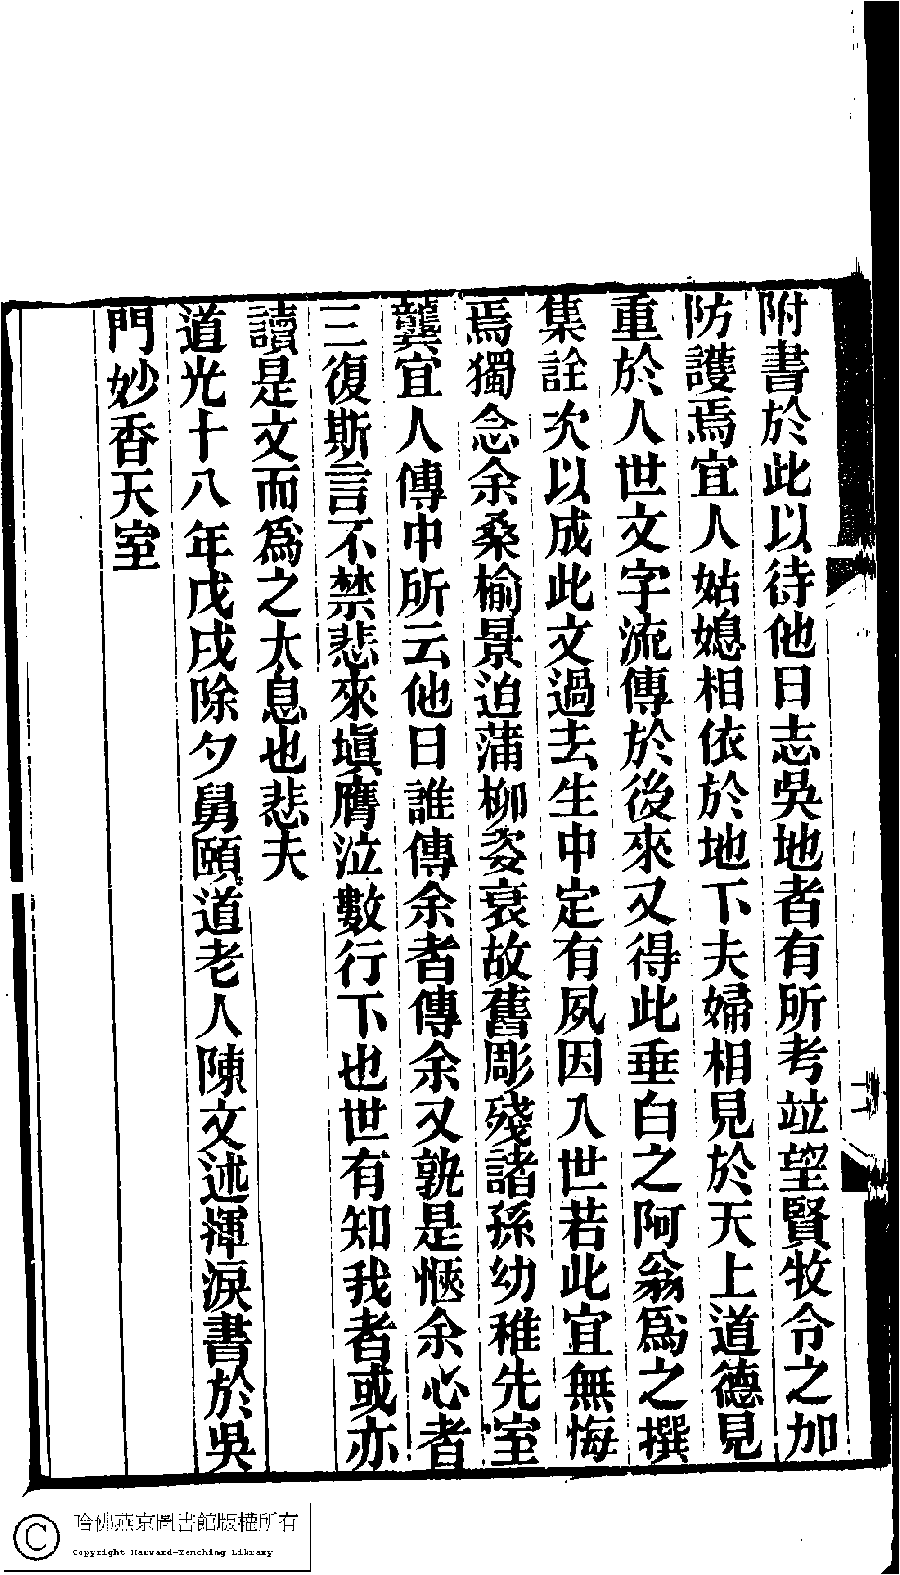 附書於此以待他日志吳地者有所考竝望賢牧令之加
防護焉宜人姑媳相依於地下夫婦相見於天上道德見
重於人世文字流傳於後來又得此垂白之阿翁爲之撰
集詮次以成此文過去生中定有夙因入世若此宜無悔
焉獨念余桑榆景迫蒲柳姿衰故舊彫殘諸孫幼稚先室
龔宜人傳中所云他日誰傳余者傳余又孰是愜余心者
三復斯言不禁悲來塡膺泣數行下也世有知我者或亦
讀是文而爲之太息也悲夫
道光十八年戊戌除夕舅頤道老人陳文述揮淚書於吳
門妙香天室
哈佛燕京圖書館版權所有
Copyright Harvard-Yenching Library